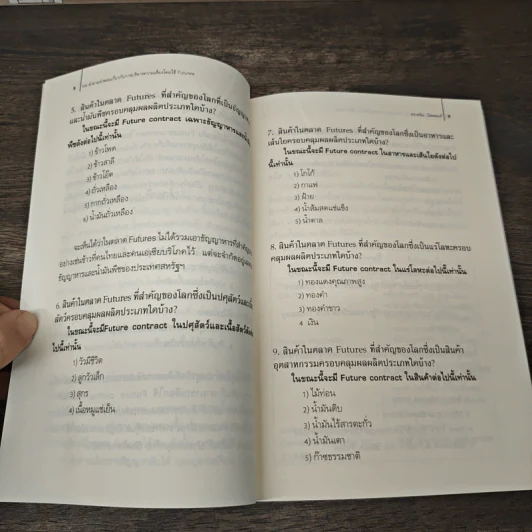 5. สินค้าในตลาด Futures ที่สำคัญของโลกที่เป็นธัญญาหาร
และน้ำมันพืชครอบคลุมผลผลิตประเภทใดบ้าง?
ในขณะนี้จะมี Future contract เฉพาะธัญญาหารและน้ำมัน
พืชดังต่อไปนี้เท่านั้น
1) ข้าวโพด
2) ข้าวสาลี
3) ข้าวโอ๊ต
4) ถั่วเหลือง
5) กากถั่วเหลือง
6) น้ำมันถั่วเหลือง
จะเห็นได้ว่าในตลาด Futures ไม่ได้รวมเอาธัญญาหารที่สำคัญ
อย่างเช่นข้าวที่คนไทยและคนเอเซียบริโภคไว้ แต่จะจำกัดอยู่
ธัญญาหารและน้ำมันพืชของประเทศสหรัฐฯ
6. สินค้าในตลาด Futures ที่สำคัญของโลกซึ่งเป็นปศุสัตว์และเนื้อ
สัตว์ครอบคลุมผลผลิตประเภทใดบ้าง?
ในขณะนี้จะมีFuture contract ในปศุสัตว์และเนื้อสัตว์
ไปนี้เท่านั้น
1) วัวมีชีวิต
2) ลูกวัวเล็ก
3) สุกร
4) เนื้อหมูแช่เย็น
9
7. สินค้าในตลาด Futures ที่สำคัญของโลกซึ่งเป็นอาหารและ
เส้นใยครอบคลุมผลผลิตประเภทใดบ้าง?
ในขณะนี้จะมี Future contract ในอาหารและเส้นใยดังต่อไป
นี้เท่านั้น
1) โกโก้
2) กาแฟ
3) ฝ้าย
4) น้ำส้มสดแช่แข็ง
5) น้ำตาล
8. สินค้าในตลาด Futures ที่สำคัญของโลกซึ่งเป็นแร่โลหะครอบ
คลุมผลผลิตประเภทใดบ้าง?
ในขณะนี้จะมี Future contract ในแร่โลหะต่อไปนี้เท่านั้น
1) ทองแดงคุณภาพสูง
2) ทองคำ
3) ทองคำขาว
4 เงิน
9. สินค้าในตลาด Futures ที่สำคัญของโลกซึ่งเป็นสินค้า
อุตสาหกรรมครอบคลุมผลผลิตประเภทใดบ้าง?
ในขณะนี้จะมี Future contract ในสินค้าต่อไปนี้เท่านั้น
1) ไม้ท่อน
2) น้ำมันดิบ
3) น้ำมันไร้สารตะกั่ว
4) น้ำมันเตา
5) ก๊าซธรรมชาติ